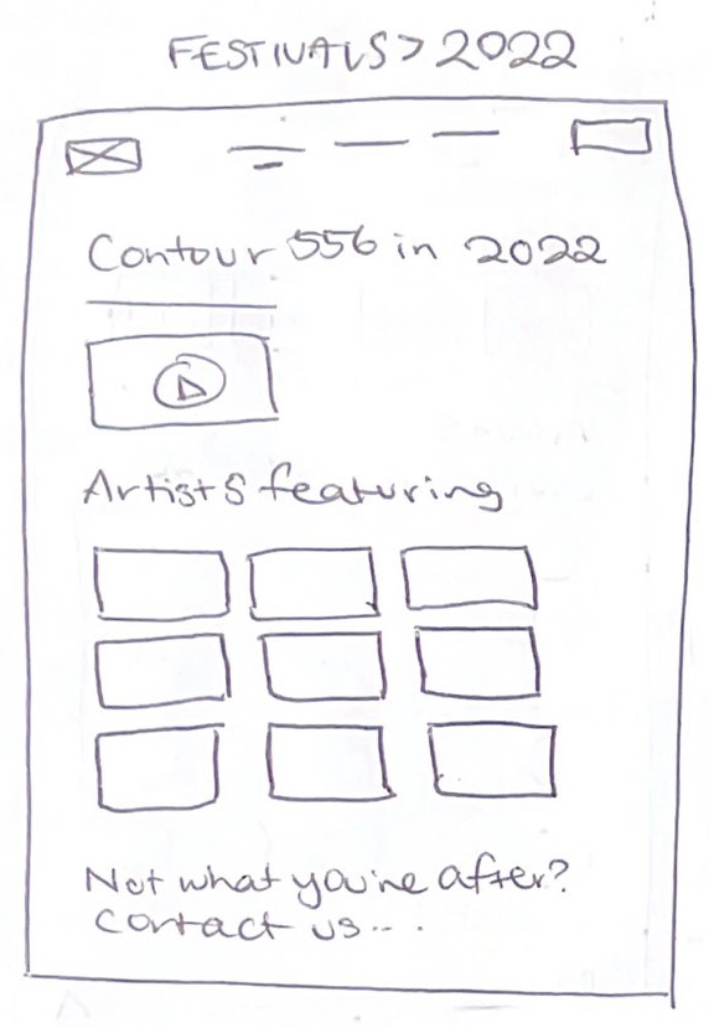 FESTIVALS > 2022
Contour 556 in 2022
Artists featuring
Not what you're after?
Contact us...